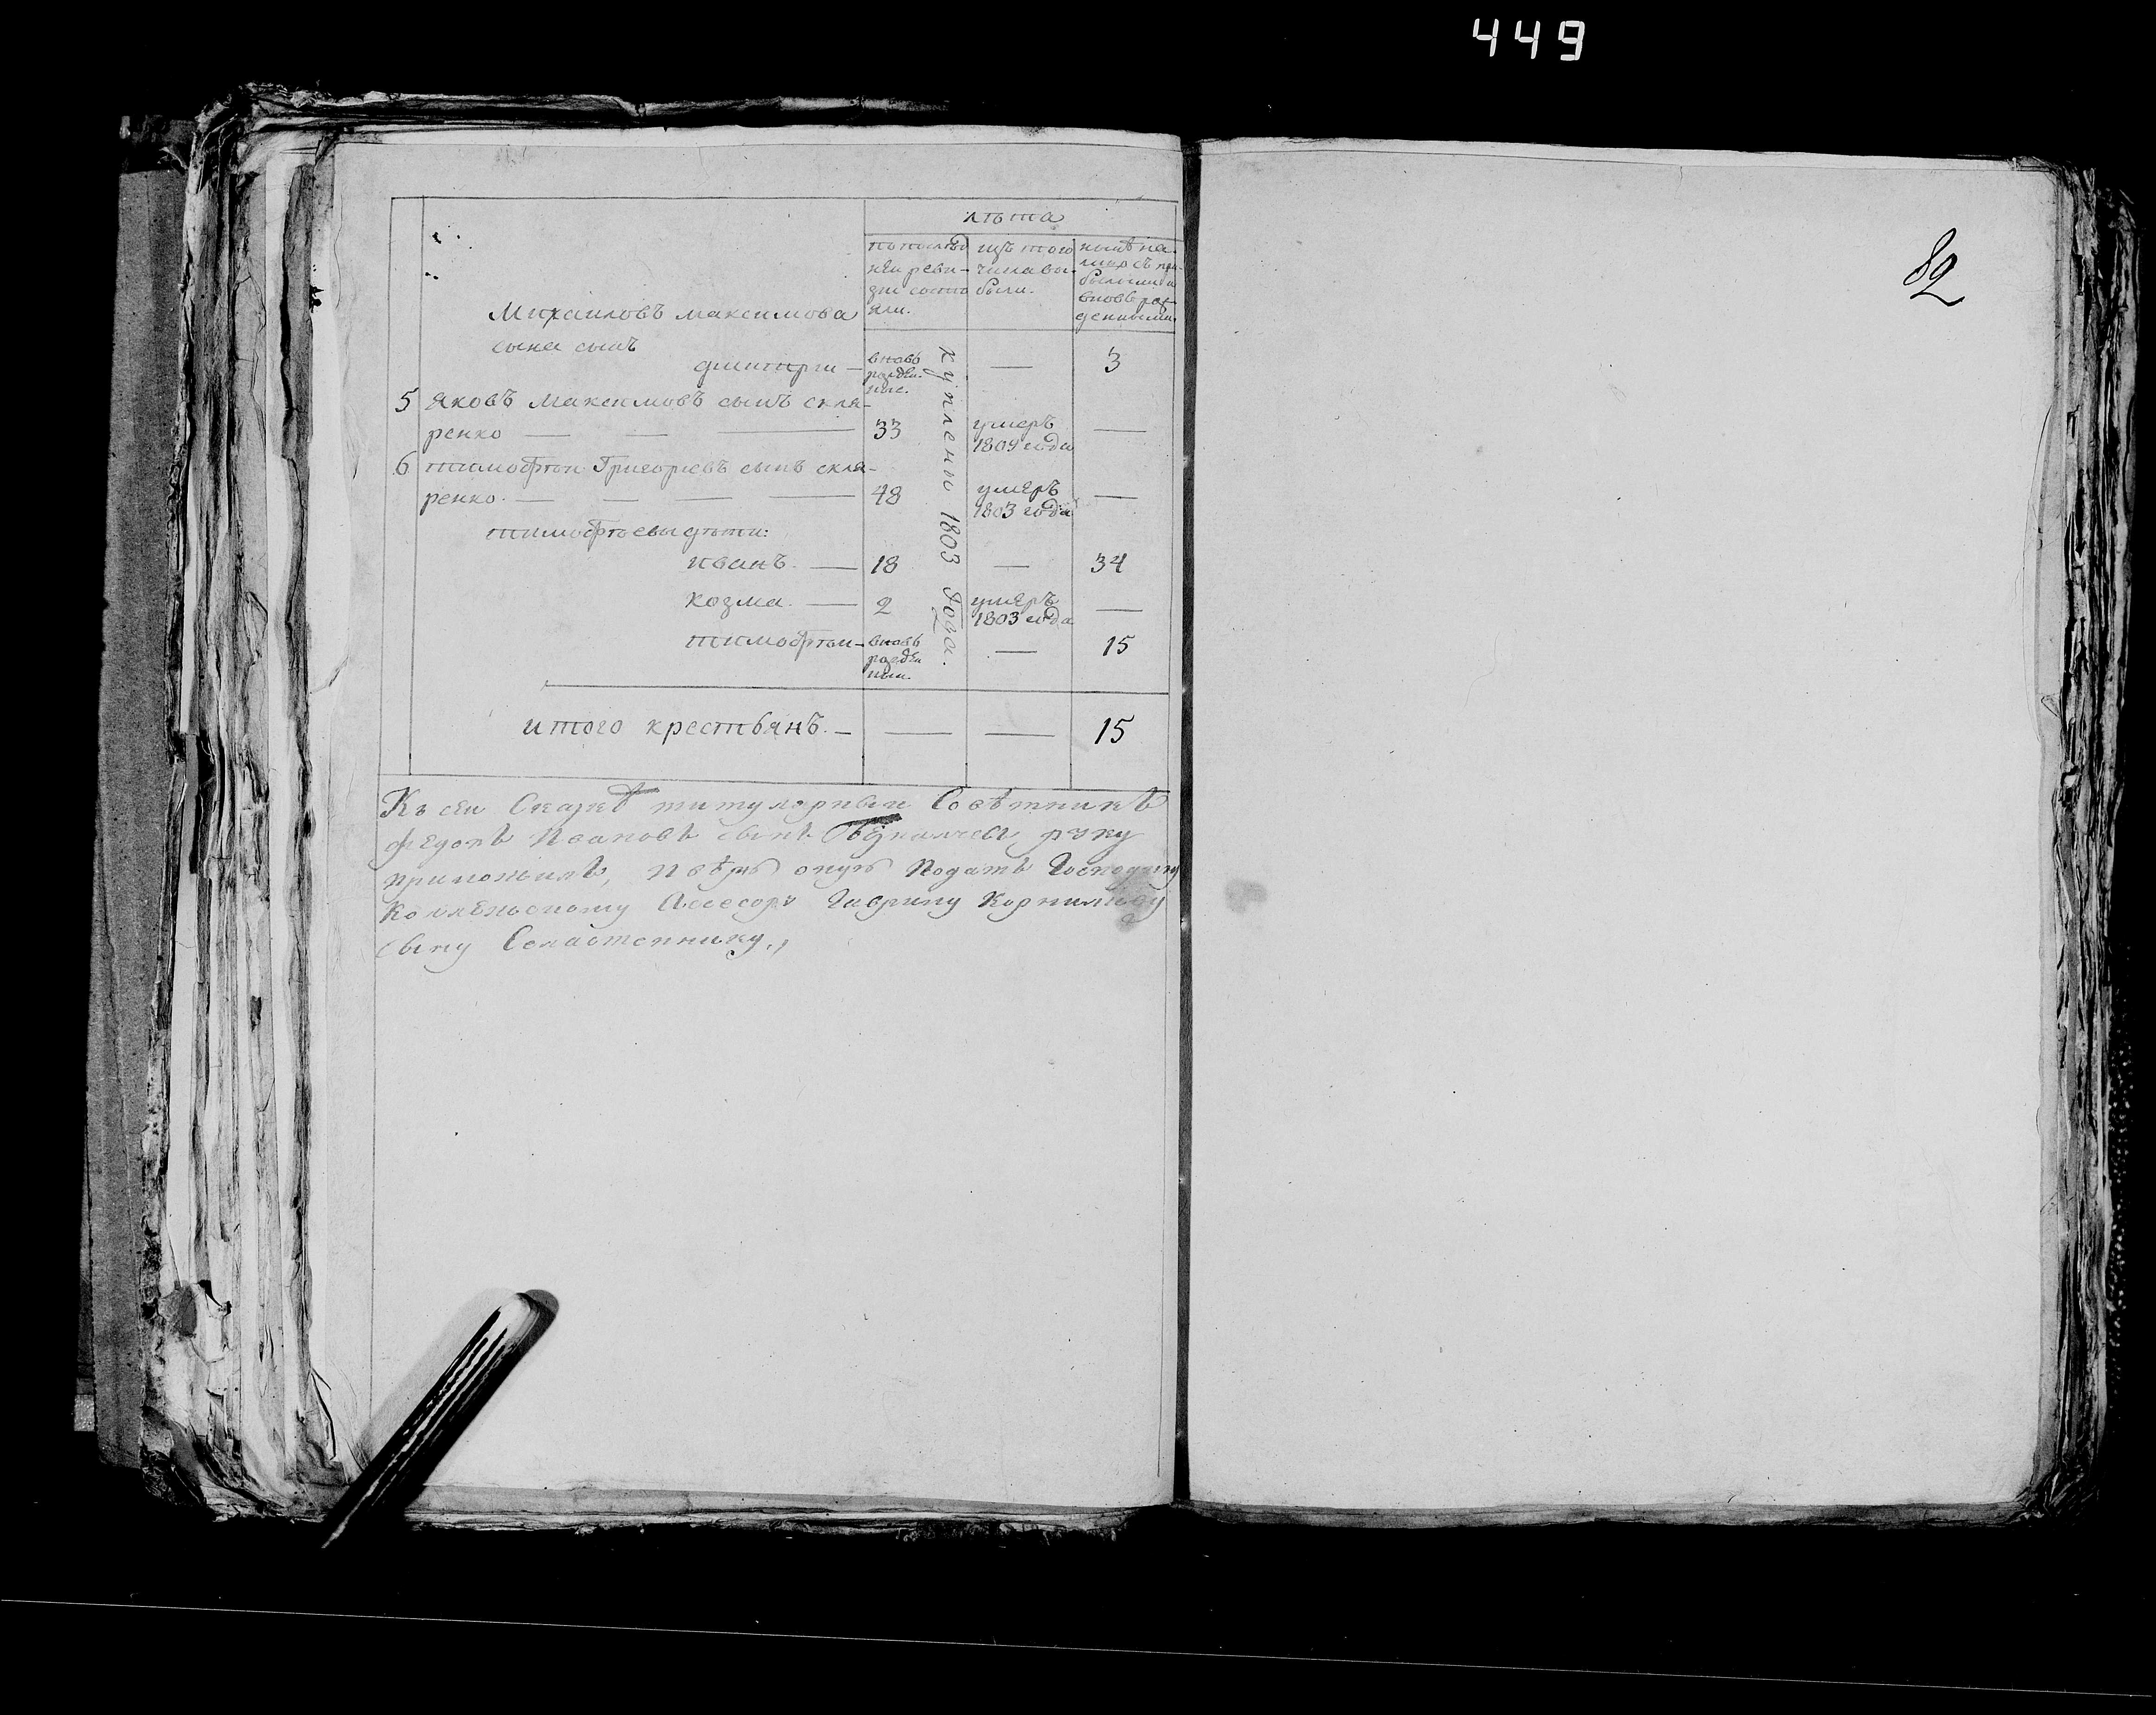 449
82
лѣта
по послѣд
ней реви-
зіи состо
яли.
изъ того
числа вы-
были.
нынѣ на
лицо съ при-
былыми и
вновь рож-
денными.
Михаиловъ максимова
сына сынъ
дмитрпи — вновь рожден. — 3
5 Яковъ Максимовъ сынъ скля-
ренко — — — 33 умеръ 1809 года —
6 тимофѣи Григорьевъ сынъ скля-
ренко. — — — — 48 умеръ 1803 года —
тимофѣевы дѣти:
иванъ. — 18 — 34
козма. — 2 умеръ 1803 года —
тимофѣи — вновь рожден ныи. — 15
купленъ 1803 Года.
итого крестьянъ. — — — 15
Къ сеи Сказкѣ титулярныи Совѣтникъ
федоръ Ивановъ сынъ руку
приложилъ, оную Подать Господину
Ассесору Гаврилу Корнилову
сыну